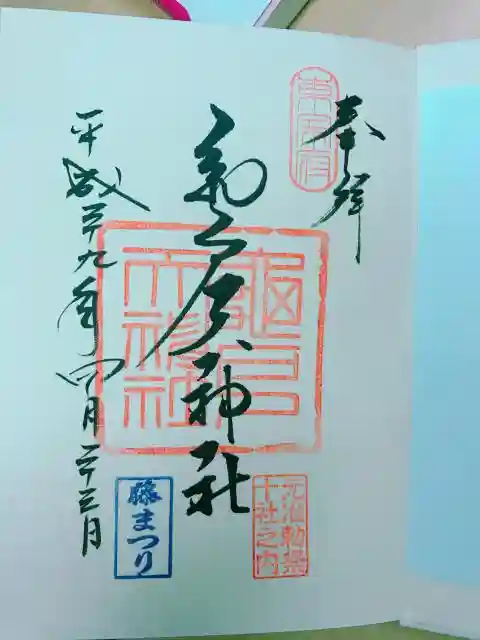 奉拝
東宰府
亀戸天神社
亀戸
天神社
元准勅祭
十社之内
平成二十九年四月二十三日
藤まつり